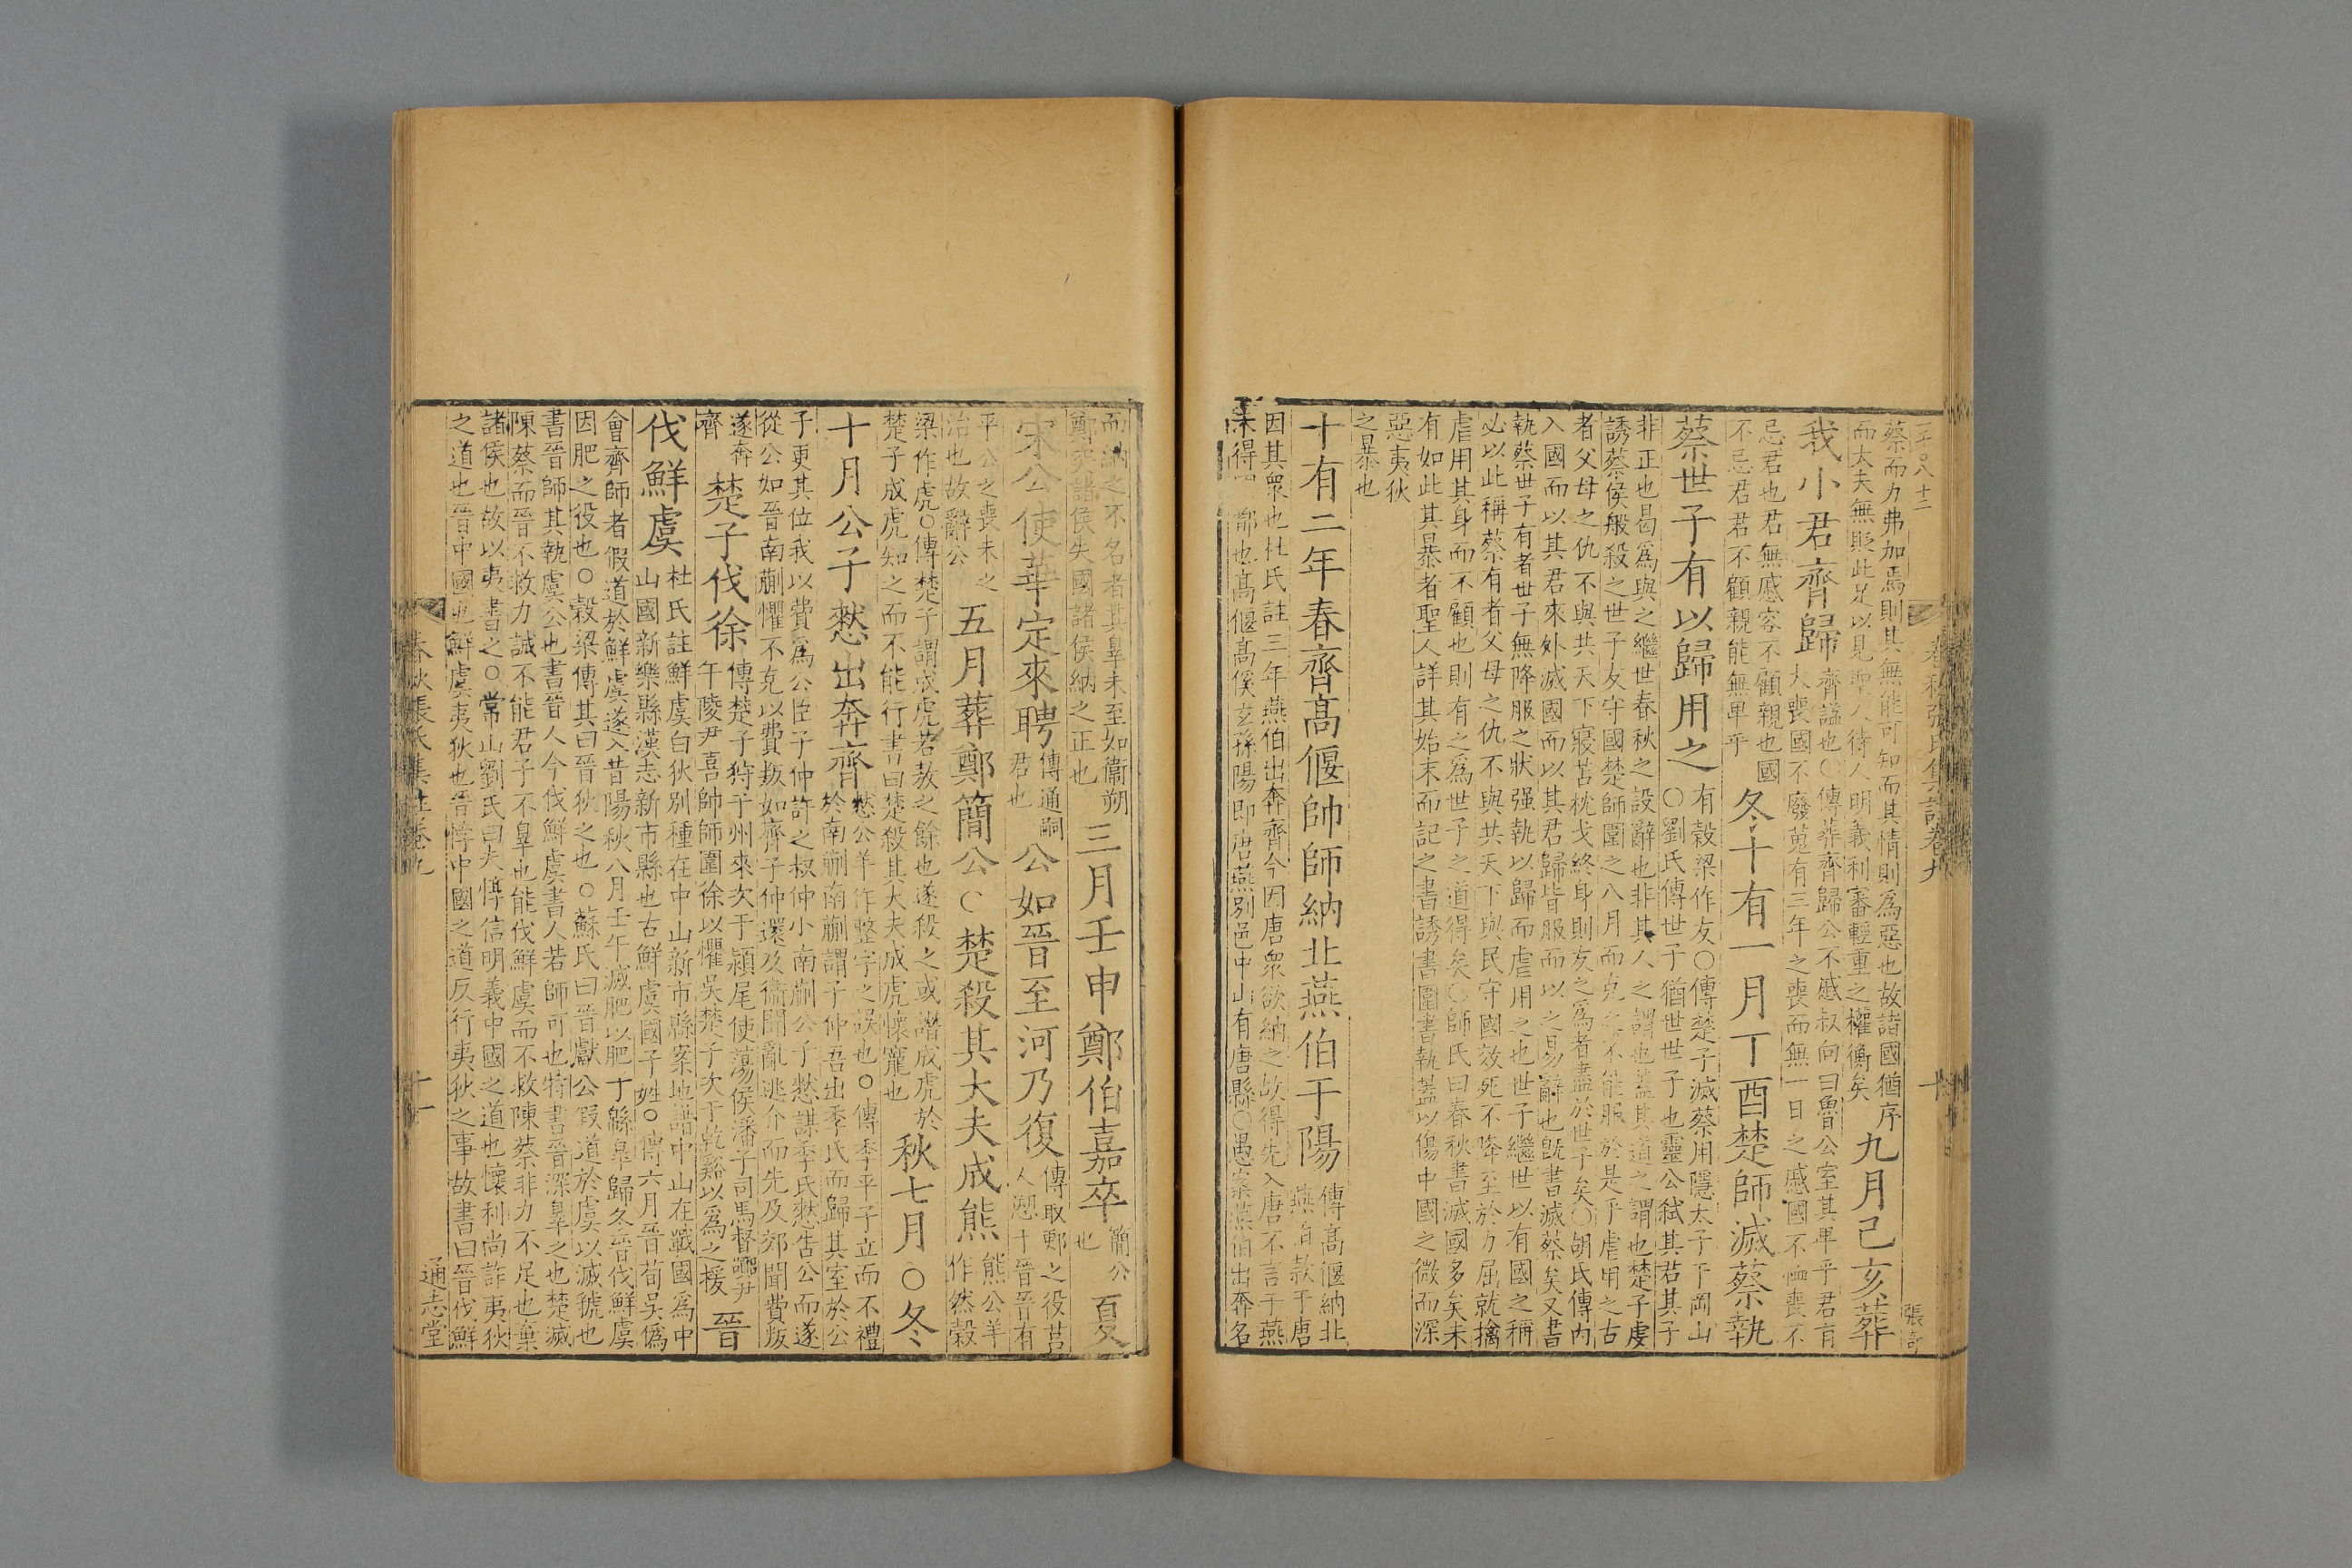 春秋張氏集註卷九
十
張奇
蔡而力弗加焉則其無能可知而其情則爲惡也故諸國猶序
而大夫無貶此足以見聖人待人明義利審輕重之權衡矣
九月己亥葬
我小君齊歸
齊謚也○傳葬齊歸公不慼叔向曰魯公室其卑乎君有
大喪國不廢蒐有三年之喪而無一日之慼國不恤喪不
忌君也君無慼容不顧親也國
不忌君君不顧親能無卑乎
冬十有一月丁酉楚師滅蔡執
蔡世子有以歸用之
有穀梁作友○傳楚子滅蔡用隱太子于岡山
○劉氏傳世子猶世世子也靈公弑其君其子
非正也曷爲與之繼世春秋之設辭也非其人之謂也蓋其道之謂也楚子虔
誘蔡侯般殺之世子友守國楚師圍之八月而克之不能服於是乎虐用之古
者父母之仇不與共天下寢苫枕戈終身則友之爲者盡於世子矣○胡氏傳内
入國而以其君來外滅國而以其君歸皆服而以之易辭也旣書滅蔡矣又書
執蔡世子有者世子無降服之狀强執以歸而虐用之也世子繼世以有國之稱
必以此稱蔡有者父母之仇不與共天下與民守國效死不降至於力屈就擒
虐用其身而不顧也則有之爲世子之道得矣○師氏曰春秋書滅國多矣未
有如此其暴者聖人詳其始末而記之書誘書圍書執蓋以傷中國之微而深
惡夷狄
之暴也
十有二年春齊高偃帥師納北燕伯于陽
傳高偃納北
燕伯款于唐
因其衆也杜氏註三年燕伯出奔齊今因唐衆欲納之故得先入唐不言于燕
未得 都也高偃高傒玄孫陽即唐燕别邑中山有唐縣○愚案燕伯出奔名
而納之不名者其辠未至如衞朔
鄭突諸侯失國諸侯納之正也
三月壬申鄭伯嘉卒
簡公
也
夏
宋公使華定來聘
傳通嗣
君也
公如晉至河乃復
傳取鄆之役莒
人愬于晉晉有
平公之喪未之
治也故辭公
五月葬鄭簡公○楚殺其大夫成熊
熊公羊
作然穀
梁作虎○傳楚子謂成虎若敖之餘也遂殺之或譖成虎於
楚子成虎知之而不能行書曰楚殺其大夫成虎懷寵也
秋七月○冬
十月公子憖出奔齊
憖公羊作整字之誤也○傳季平子立而不禮
於南蒯南蒯謂子仲吾出季氏而歸其室於公
子更其位我以費爲公臣子仲許之叔仲小南蒯公子憖謀季氏憖告公而遂
從公如晉南蒯懼不克以費叛如齊子仲還及衞聞亂逃介而先及郊聞費叛
遂奔
齊
楚子伐徐
傳楚子狩于州來次于潁尾使蕩侯潘子司馬督嚻尹
午陵尹喜帥師圍徐以懼吳楚子次于乾谿以爲之援
晉
伐鮮虞
杜氏註鮮虞白狄別種在中山新市縣案地譜中山在戰國爲中
山國新樂縣漢志新市縣也古鮮虞國子姓○傳六月晉荀吳僞
會齊師者假道於鮮虞遂入昔陽秋八月壬午滅肥以肥子緜皋歸冬晉伐鮮虞
因肥之役也○穀梁傳其曰晉狄之也○蘇氏曰晉獻公假道於虞以滅虢也
書晉師其執虞公也書晉人今伐鮮虞書人若師可也特書晉深辠之也楚滅
陳蔡而晉不救力誠不能君子不辠也能伐鮮虞而不救陳蔡非力不足也棄
諸侯也故以夷書之○常山劉氏曰夫惇信明義中國之道也懷利尚詐夷狄
之道也晉中國也鮮虞夷狄也晉悖中國之道反行夷狄之事故書曰晉伐鮮
春秋張氏集註卷九
十一
通志堂